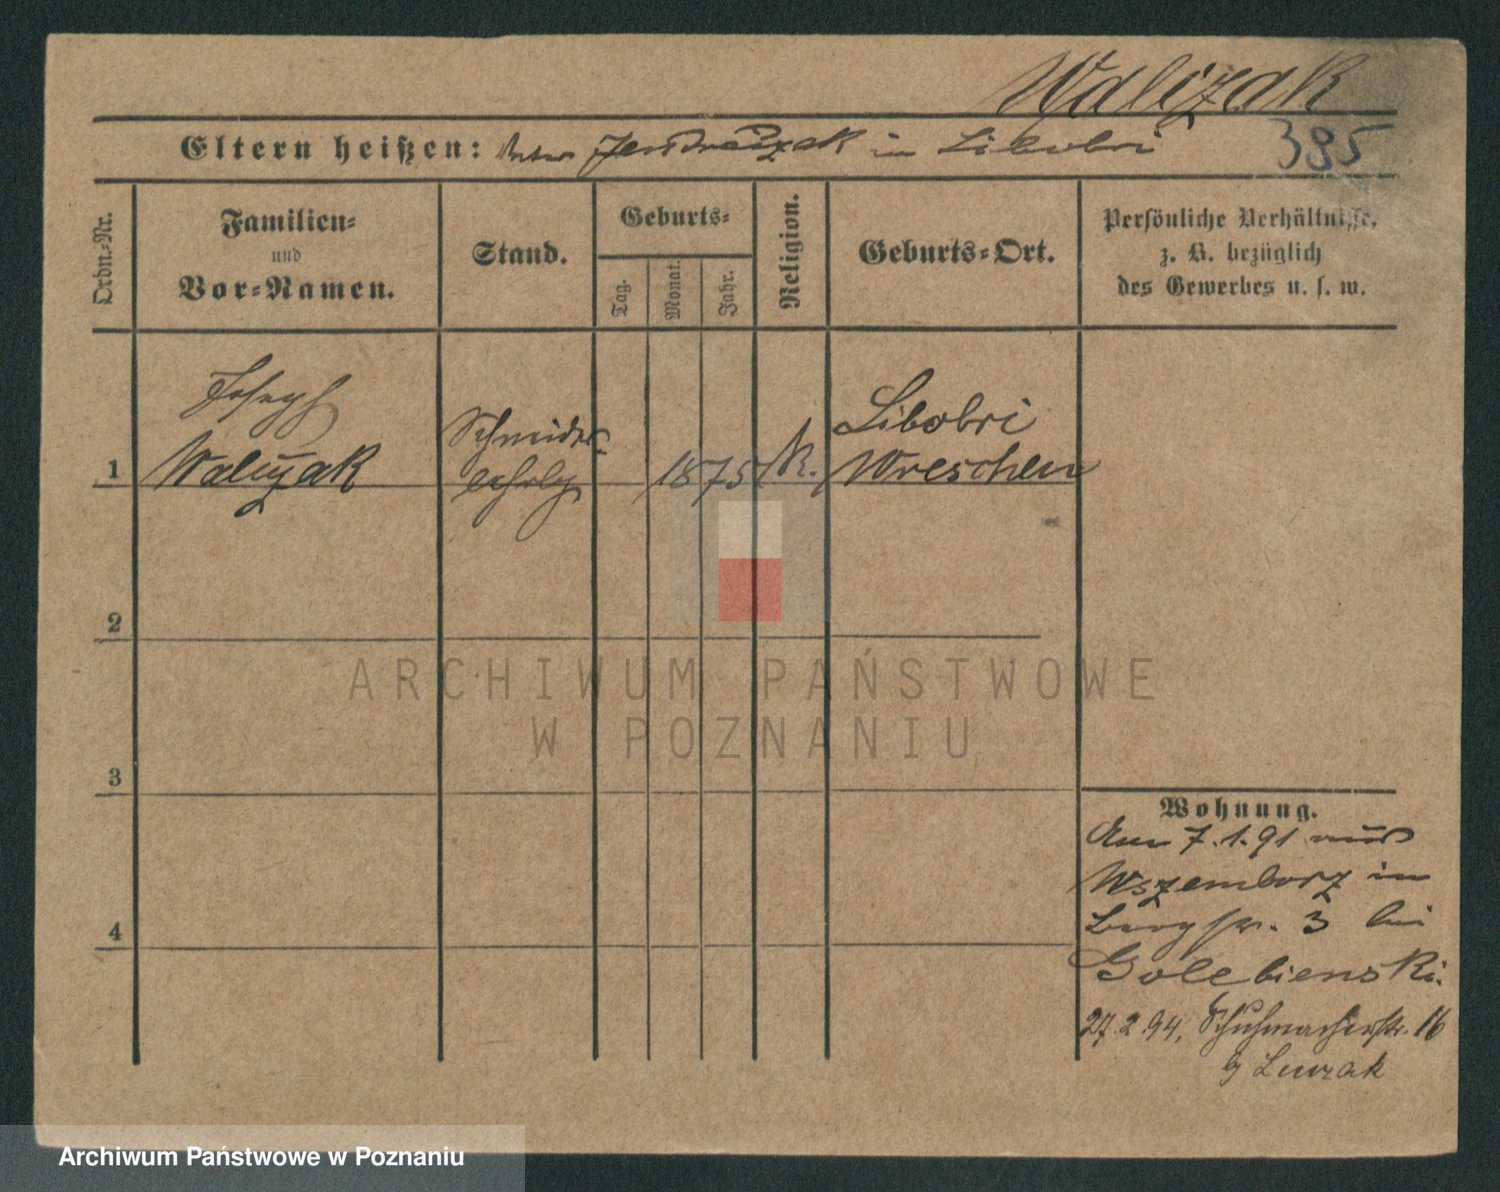 Walczak
Eltern heißen: Jendraszak in Libobri
395
Ordn.-Nr.
Familien-
und
Vor-Namen.
Stand.
Geburts-
Tag.
Monat.
Jahr.
Religion.
Geburts-Ort.
Persönliche Verhältnisse,
z. B. bezüglich
des Gewerbes u. s. w.
1
Joseph
Walczak
Schneider-
lehrlg
1875
k.
Libobri
Wreschen
2
3
4
Wohnung.
Am 7.1.91 aus
Wszemborz in
Bergstr. 3 bei
Golebienski.
27.2.94. Schuhmacherstr. 16
b Luczak
ARCHIWUM PAŃSTWOWE
W POZNANIU
Archiwum Państwowe w Poznaniu